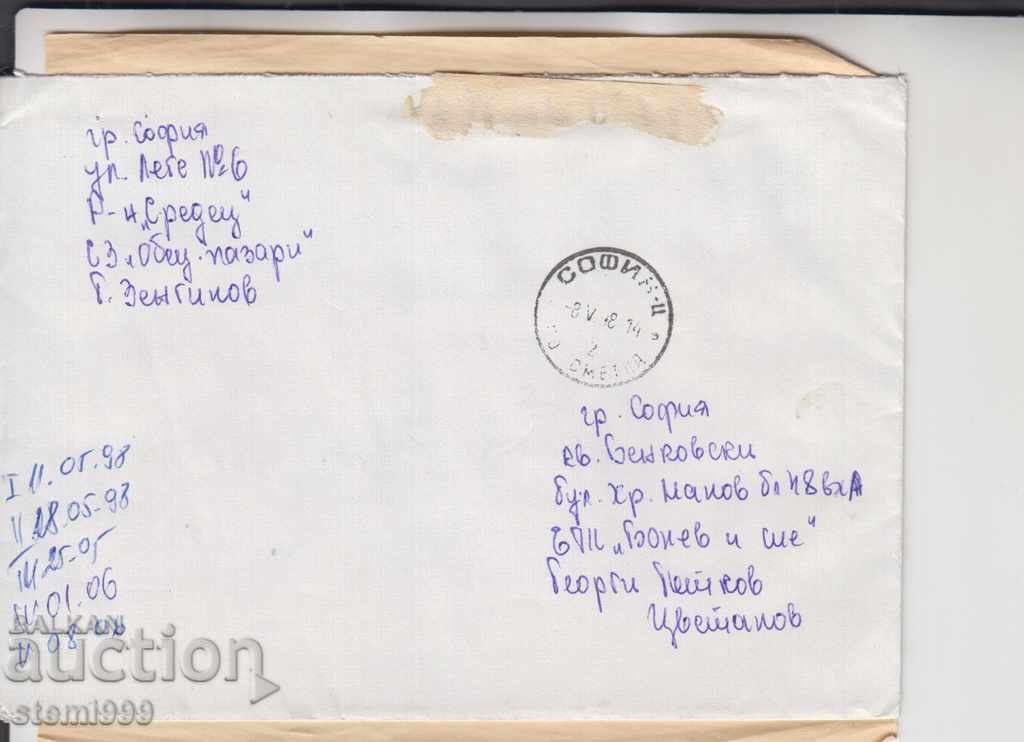 гр. София
ул. Леге №6
Р-н „Средец"
СЗ „Общ. пазари"
Т.
СОФИЯ-Ц
-8 V 14
2
СМЕТКА
гр. София
кв. Бенковски
бул. Хр. Манов бл 48 вхА
„Бонев и сие"
Георги Петков
Цветанов
I 11.05.98
II 18.05-98
III 25-05
01.06
V 08
BALKAN
auction
stoml999